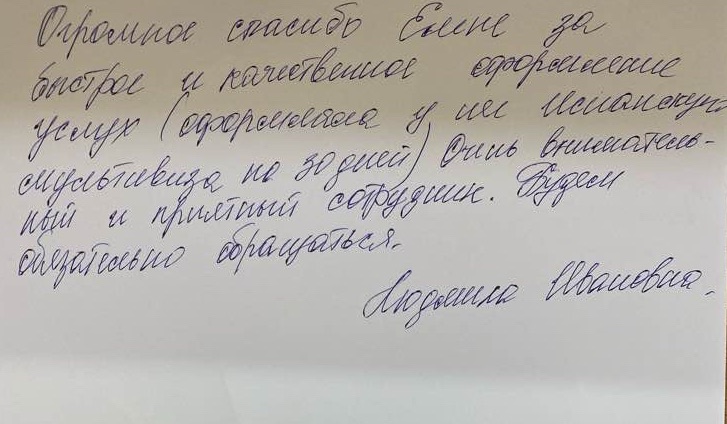 Огромное спасибо Елене за
быстрое и качественное оформление
услуг (оформляла у них Испанскую
мультивиза на 30 дней) Очень вниматель-
ный и приятный сотрудник. Будем
обязательно обращаться.
Людмила Ивановна.